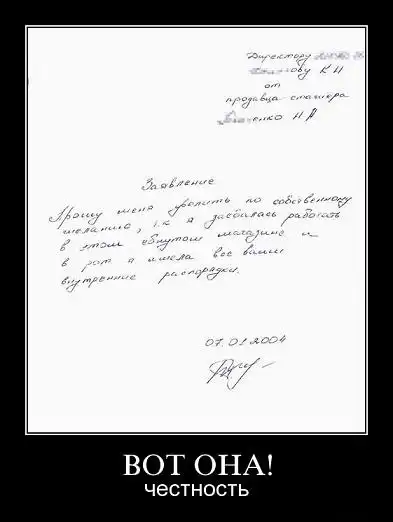 Директору
К Н
от
продавца стажера
Н А
Заявление
Прошу меня уволить по собственному
желанию, т.к я заебалась работать
в этом ебнутом магазине и
в рот я имела все ваши
внутренние распорядки.
07.01.2004
ВОТ ОНА!
честность